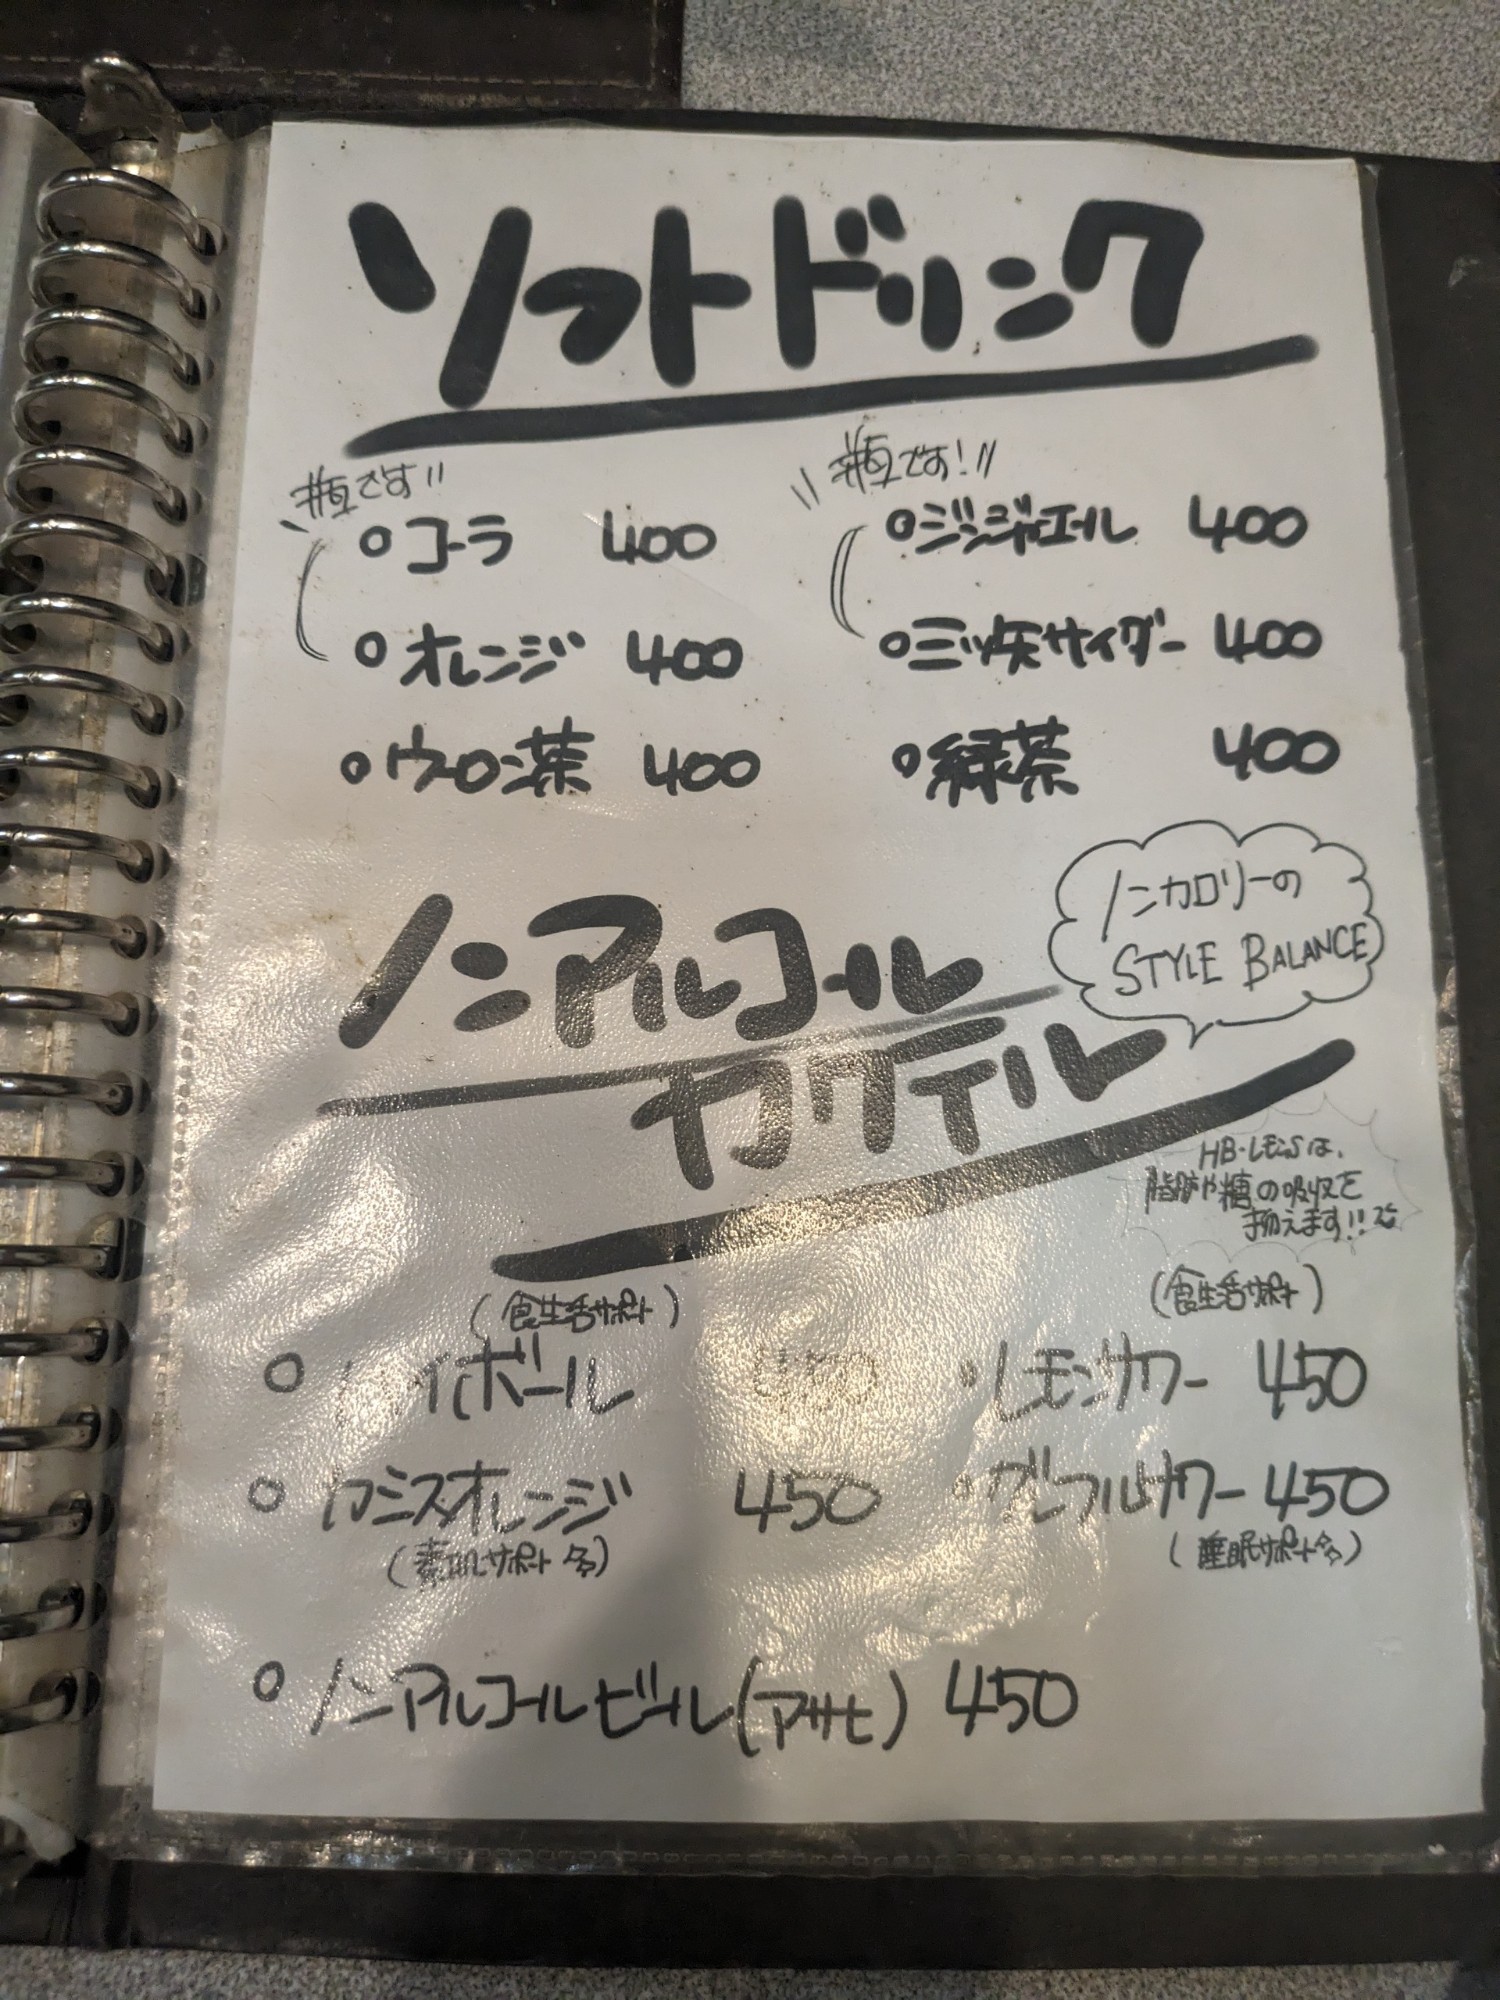 ソフトドリンク
瓶です!!
瓶です!!
○コーラ 400
○ジンジャエール 400
○オレンジ 400
○三ツ矢サイダー 400
○ウーロン茶 400
○緑茶 400
ノンカロリーの
STYLE BALANCE
ノンアルコール
カクテル
HB・レモンSは、
脂肪や糖の吸収を
抑えます!!
(食生活サポート)
(食生活サポート)
○ハイボール 450
○レモンサワー 450
○カシスオレンジ 450
○グレフルサワー 450
(素肌サポート)
(睡眠サポート)
○ノンアルコールビール(アサヒ) 450